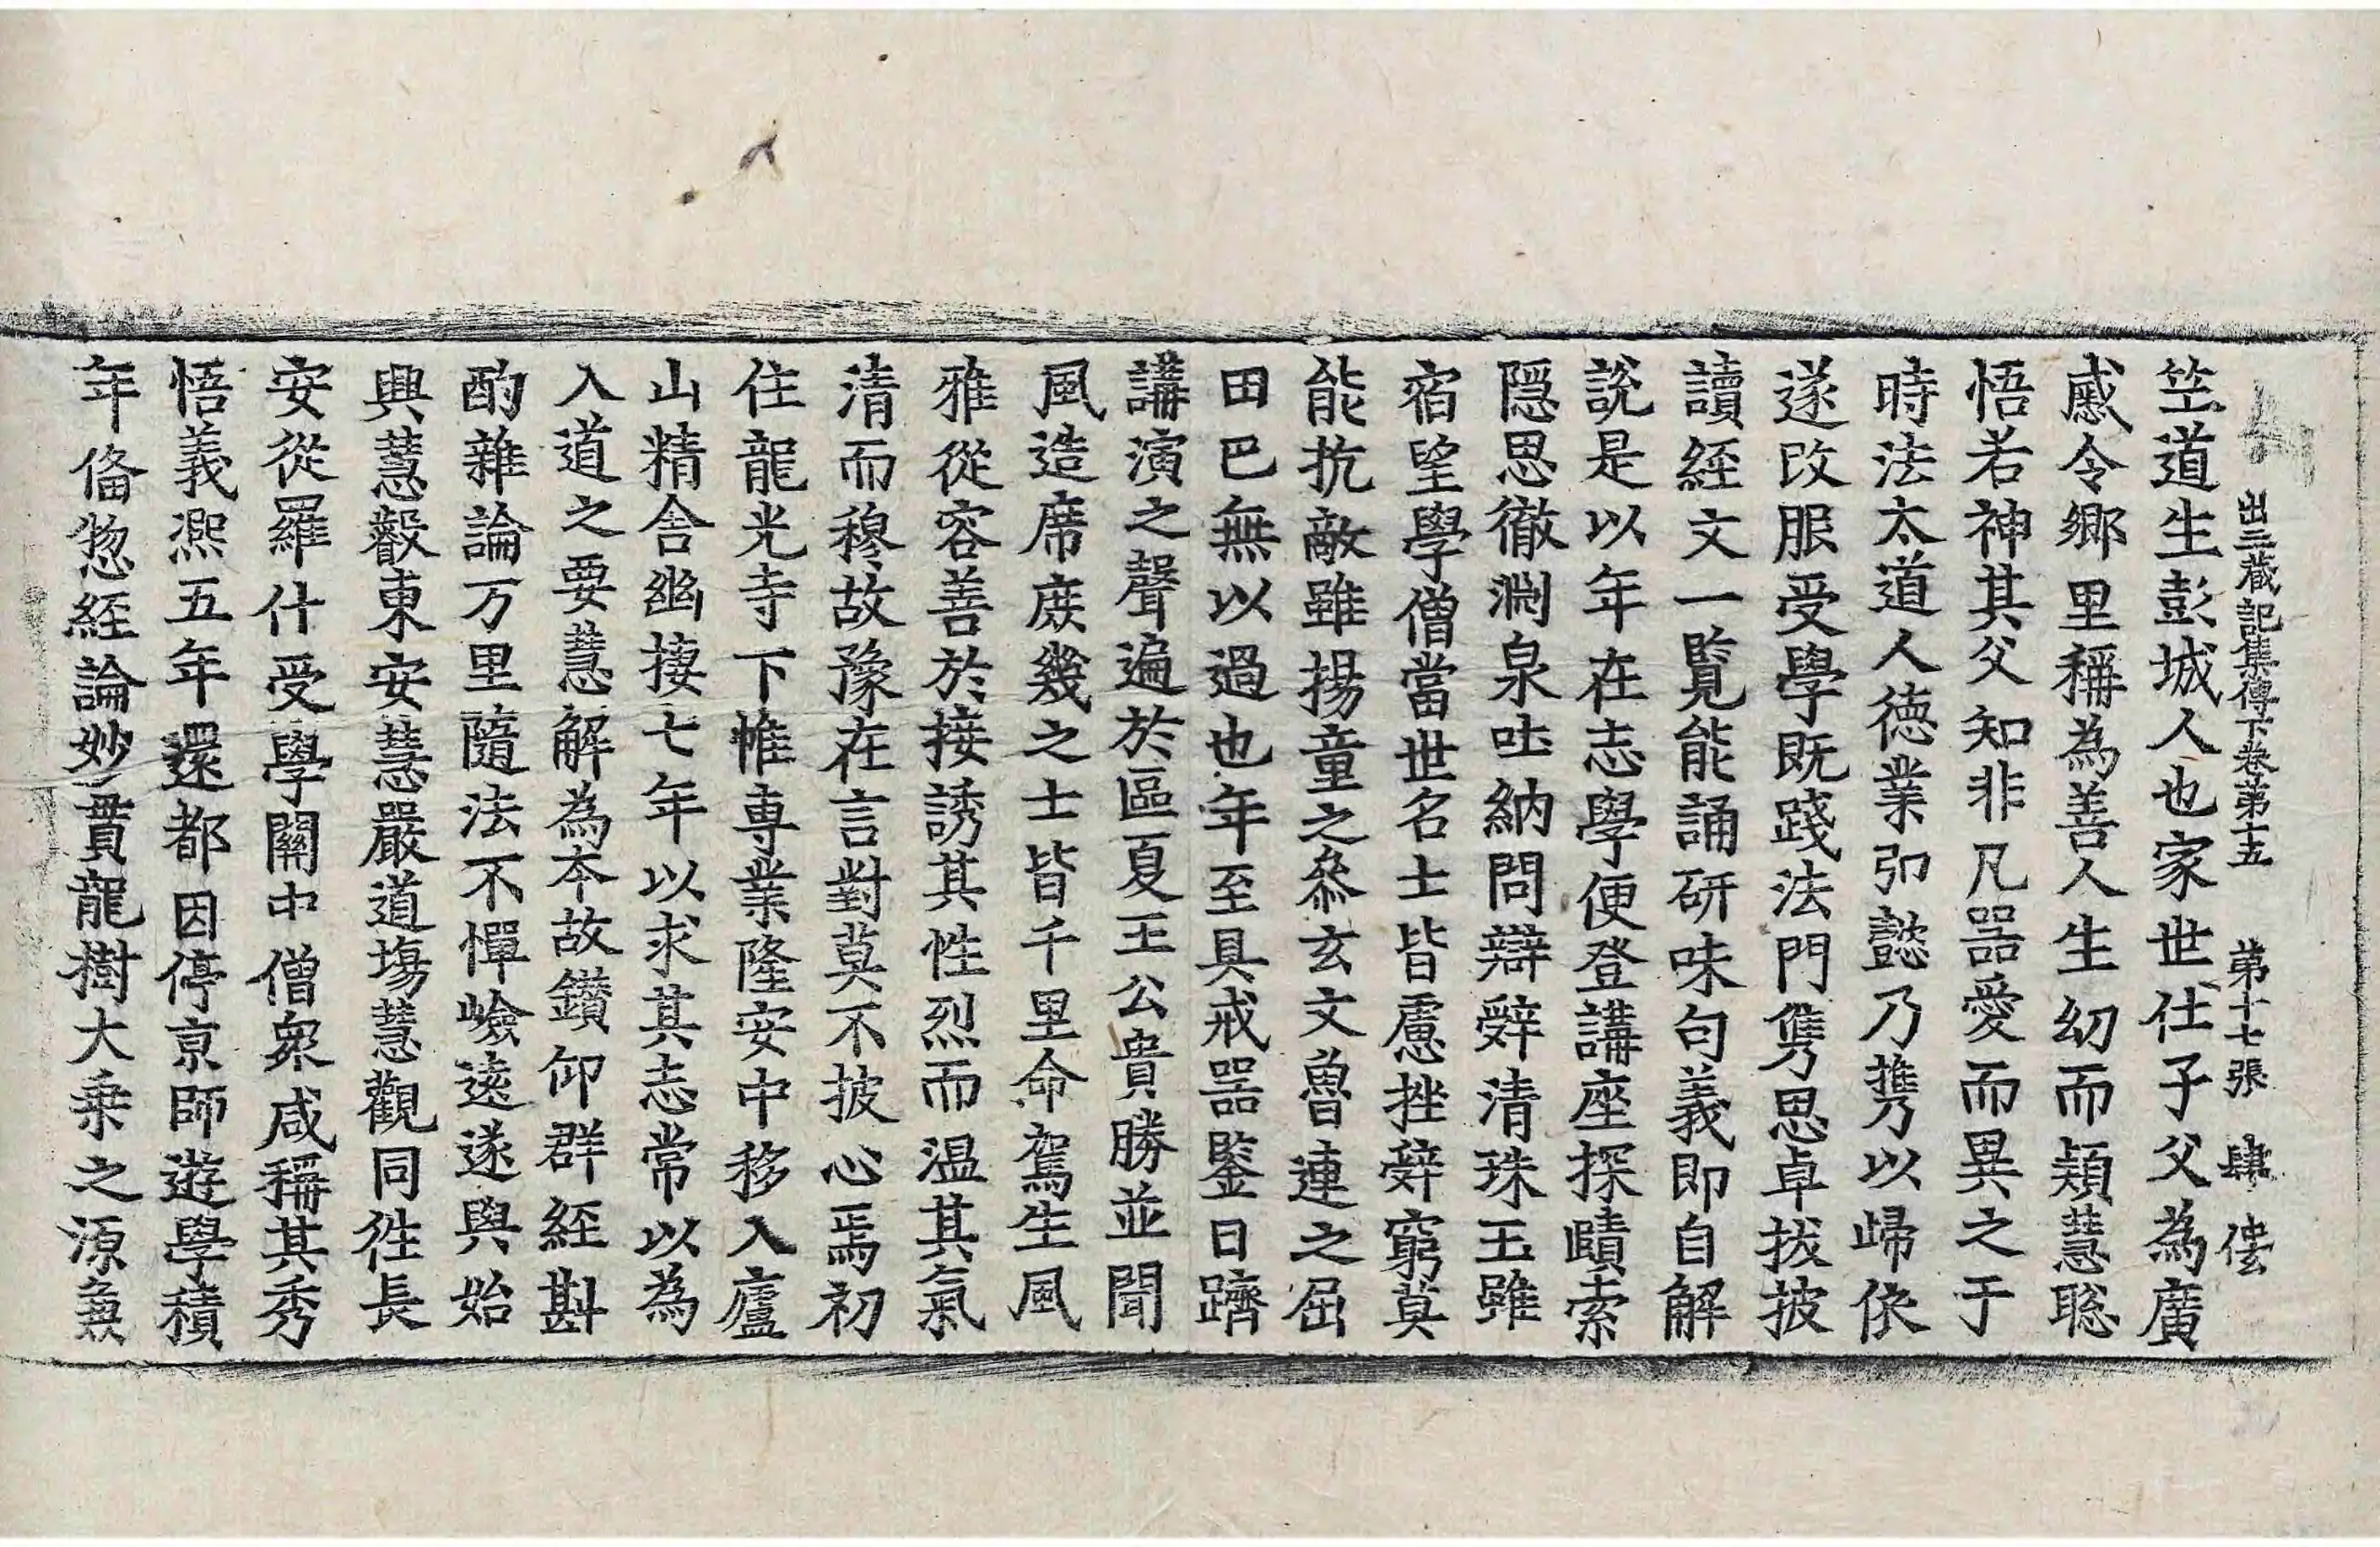 出三藏記集傳下卷第十五 第十七張 肆
竺道生彭城人也家世仕子父為廣
戚令鄉里稱為善人生幼而穎慧聡
悟若神其父知非凡器愛而異之于
時法太道人德業弘懿乃携以歸依
遂改服受學既踐法門雋思卓拔披
讀經文一覧能誦研味句義即自解
說是以年在志學便登講座探賾索
隠思徹淵泉吐納問辯辝清珠玉雖
宿望學僧當世名士皆慮挫辝窮莫
能抗敵雖揚童之叅玄文魯連之屈
田巴無以過也年至具戒器鑒日躋
講演之聲遍於區夏王公貴勝並聞
風造席庻幾之士皆千里命駕生風
雅從容善於接誘其性烈而温其氣
清而穆故豫在言對莫不披心焉初
住龍光寺下帷專業隆安中移入廬
山精舍幽捿七年以求其志常以為
入道之要慧解為夲故鑚仰群經斟
酌雜論万里隨法不憚嶮遠遂與始
興慧叡東安慧嚴道塲慧觀同徃長
安從羅什受學關中僧衆咸稱其秀
悟義熈五年還都因停亰師遊學積
年俻惣經論妙貫龍樹大乗之源兼